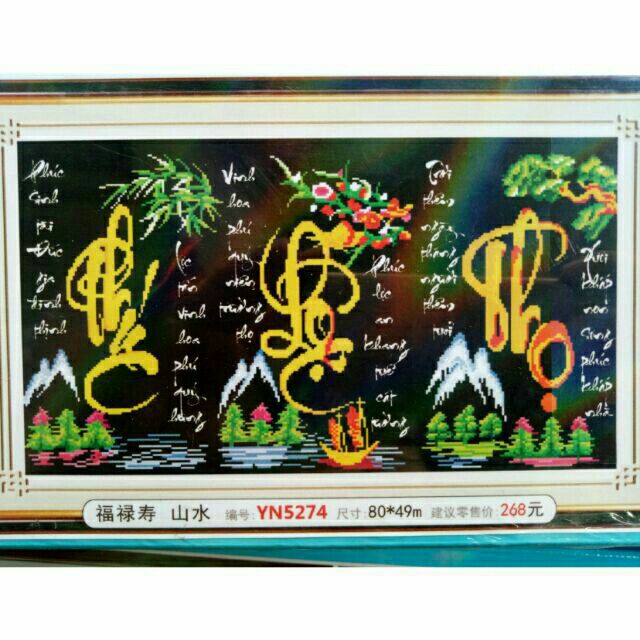 Phúc
Sinh
tài
Đức
gia
thịnh
Phúc
lộc
tấn
vinh
hoa
phú
quý
Vinh
hoa
phú
quý
niên
trường
thọ
Lộc
Phúc
lộc
an
khang
cát
tường
Trời
thêm
ngày
tháng
người
thêm
tuổi
Thọ
khắp
non
Sông
phúc
khắp
nhà
福禄寿 山水 编号:YN5274 尺寸:80*49m 建议零售价:268元